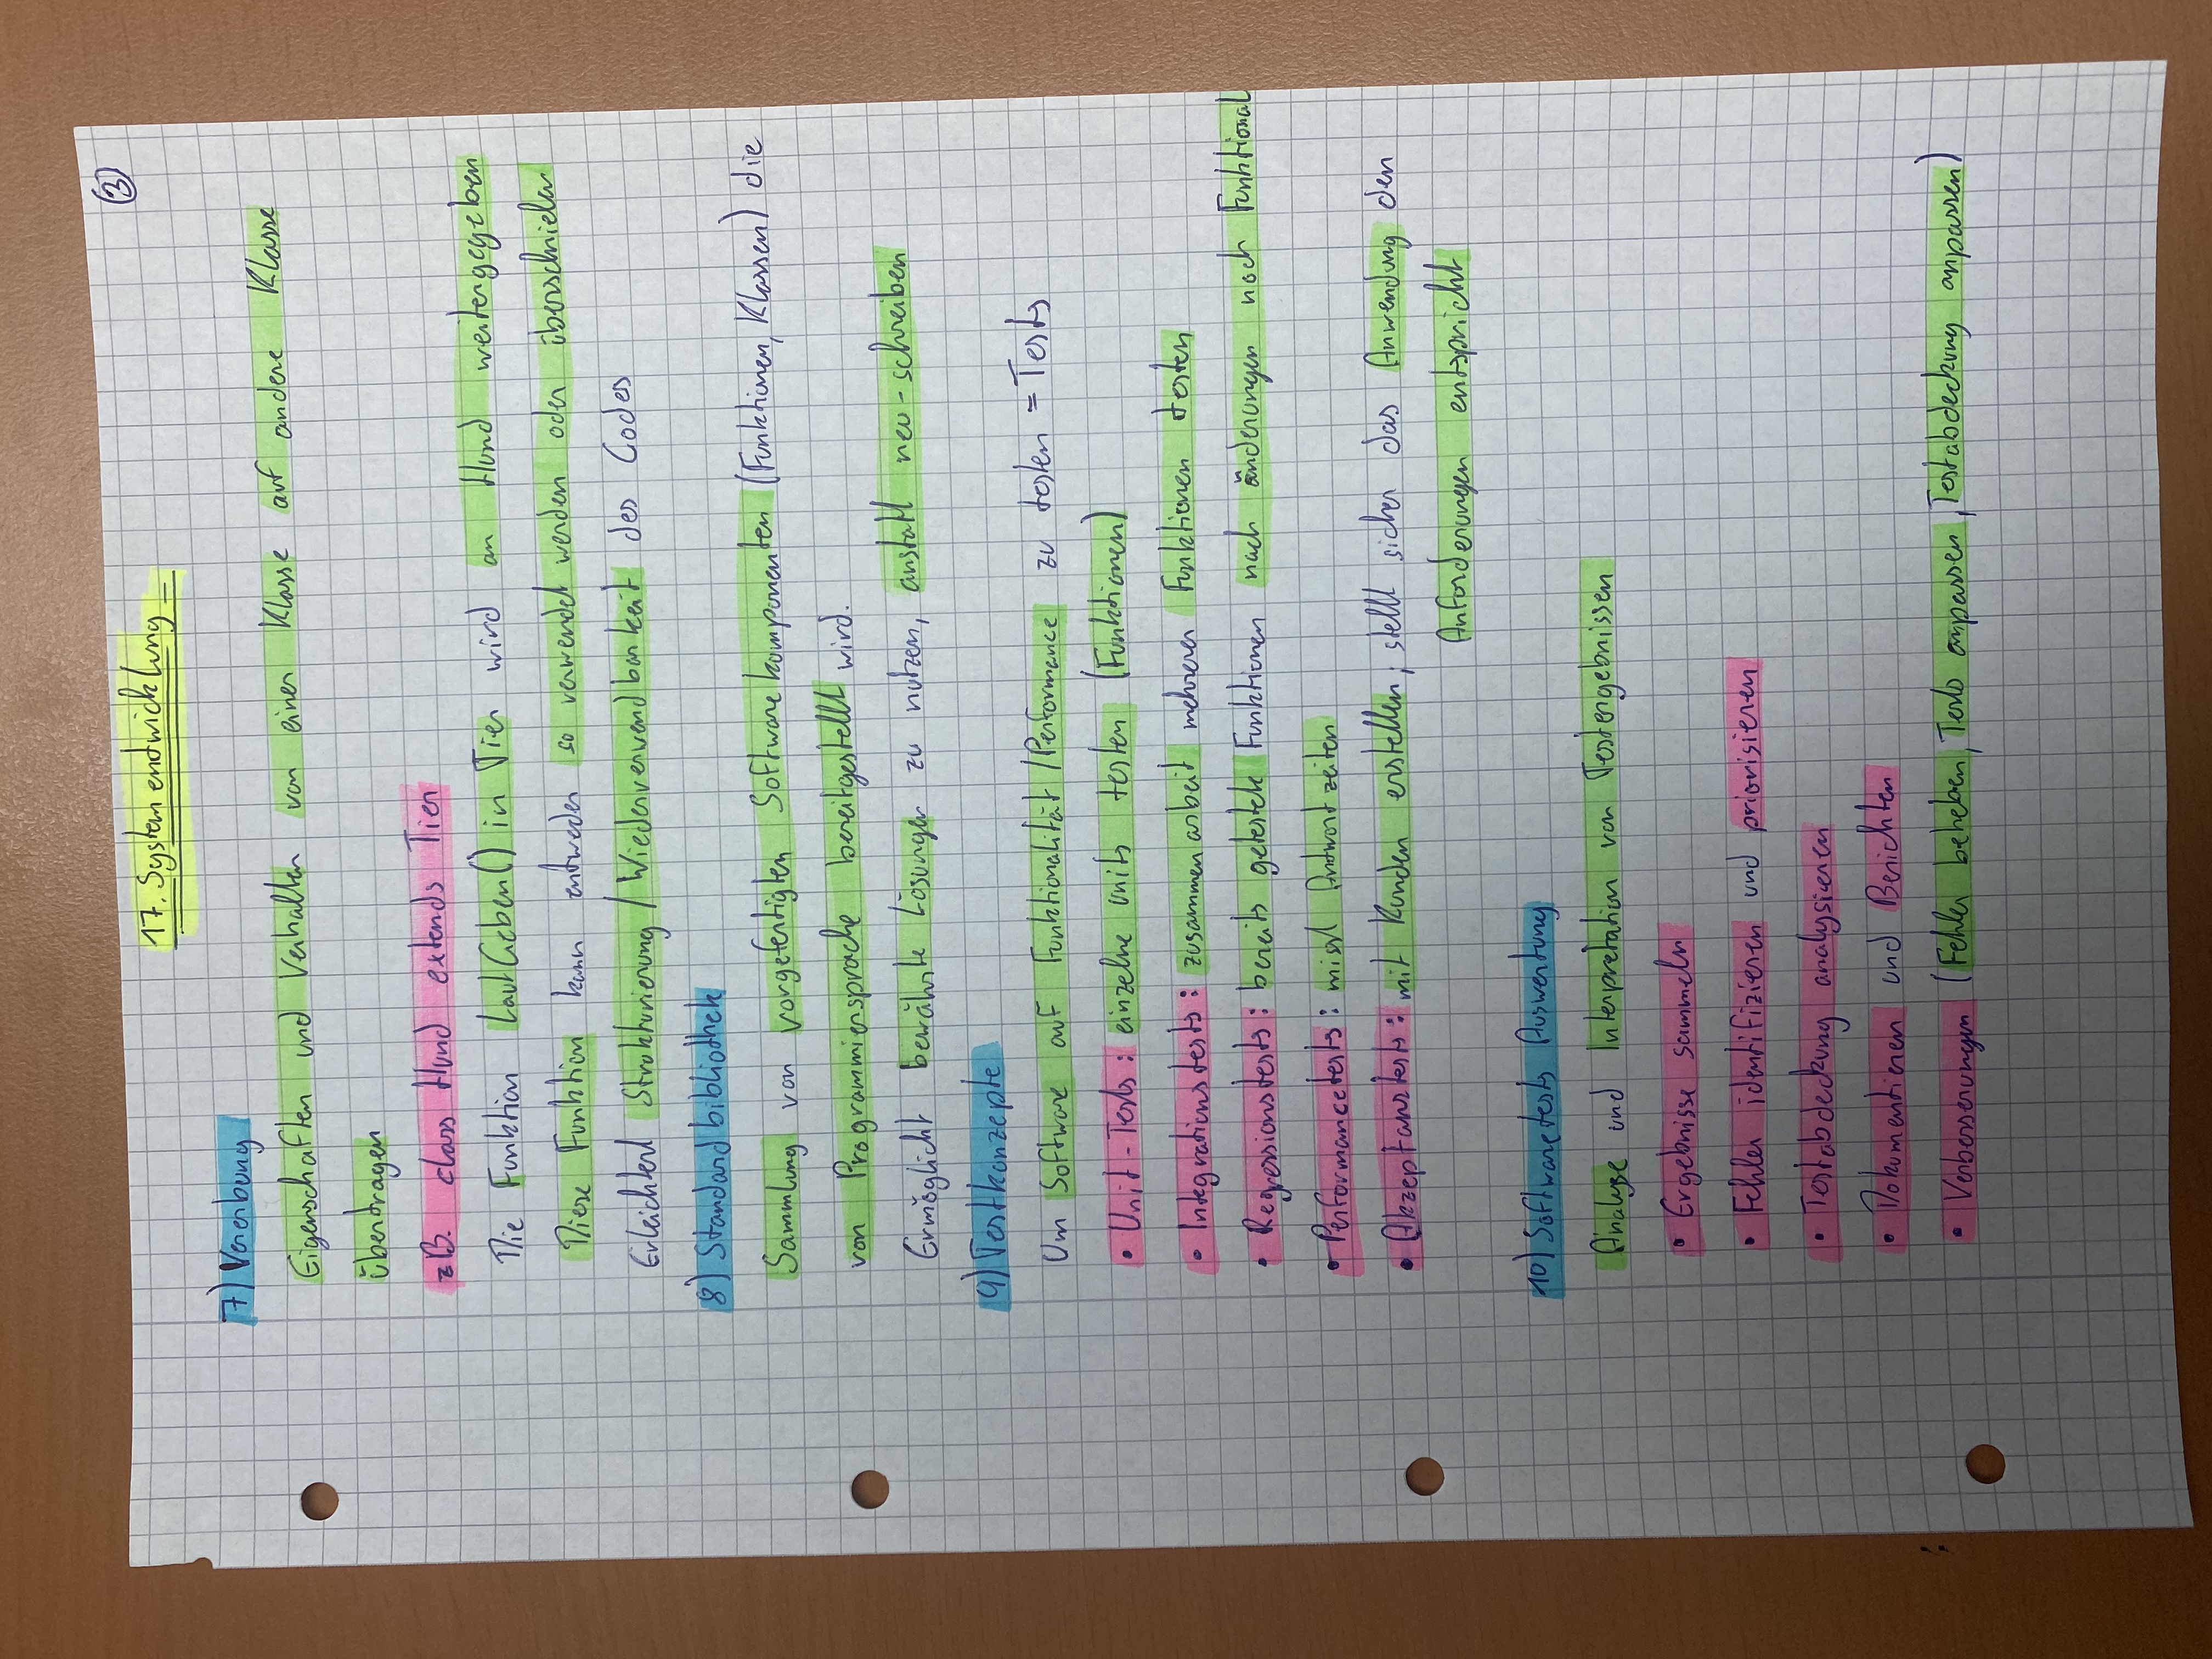 3
17. Systementwicklung
7) Vererbung
Eigenschaften und Verhalten von einer Klasse auf andere Klasse
übertragen
zB. class Hund extends Tier
Die Funktion LautGeben() in Tier wird an Hund weitergegeben
Diese Funktion kann entweder so verwendet werden oder überschrieben
Erleichtert Strukturierung / Wiederverwendbarkeit des Codes
8) Standardbibliothek
Sammlung von vorgefertigten Softwarekomponenten (Funktionen, Klassen) die
von Programmiersprache bereitgestellt wird.
Ermöglicht bewährte Lösungen zu nutzen, anstatt neu-schreiben
9) Testkonzepte
Um Software auf Funktionalität / Performance zu testen = Tests
• Unit-Tests: einzelne units testen (Funktionen)
• Integrationstests: zusammenarbeit mehrerer Funktionen testen
• Regressionstests: bereits getestete Funktionen nach änderungen noch Funktional
• Performancetests: misst Antwortzeiten
• Akzeptanztests: mit Kunden erstellen; stellt sicher das Anwendung den
Anforderungen entspricht
10) Softwaretests Auswertung
Analyse und Interpretation von Testergebnissen
• Ergebnisse sammeln
• Fehler identifizieren und priorisieren
• Testabdeckung analysieren
• Dokumentieren und Berichten
• Verbesserungen (Fehler beheben, Tests anpassen, Testabdeckung anpassen)